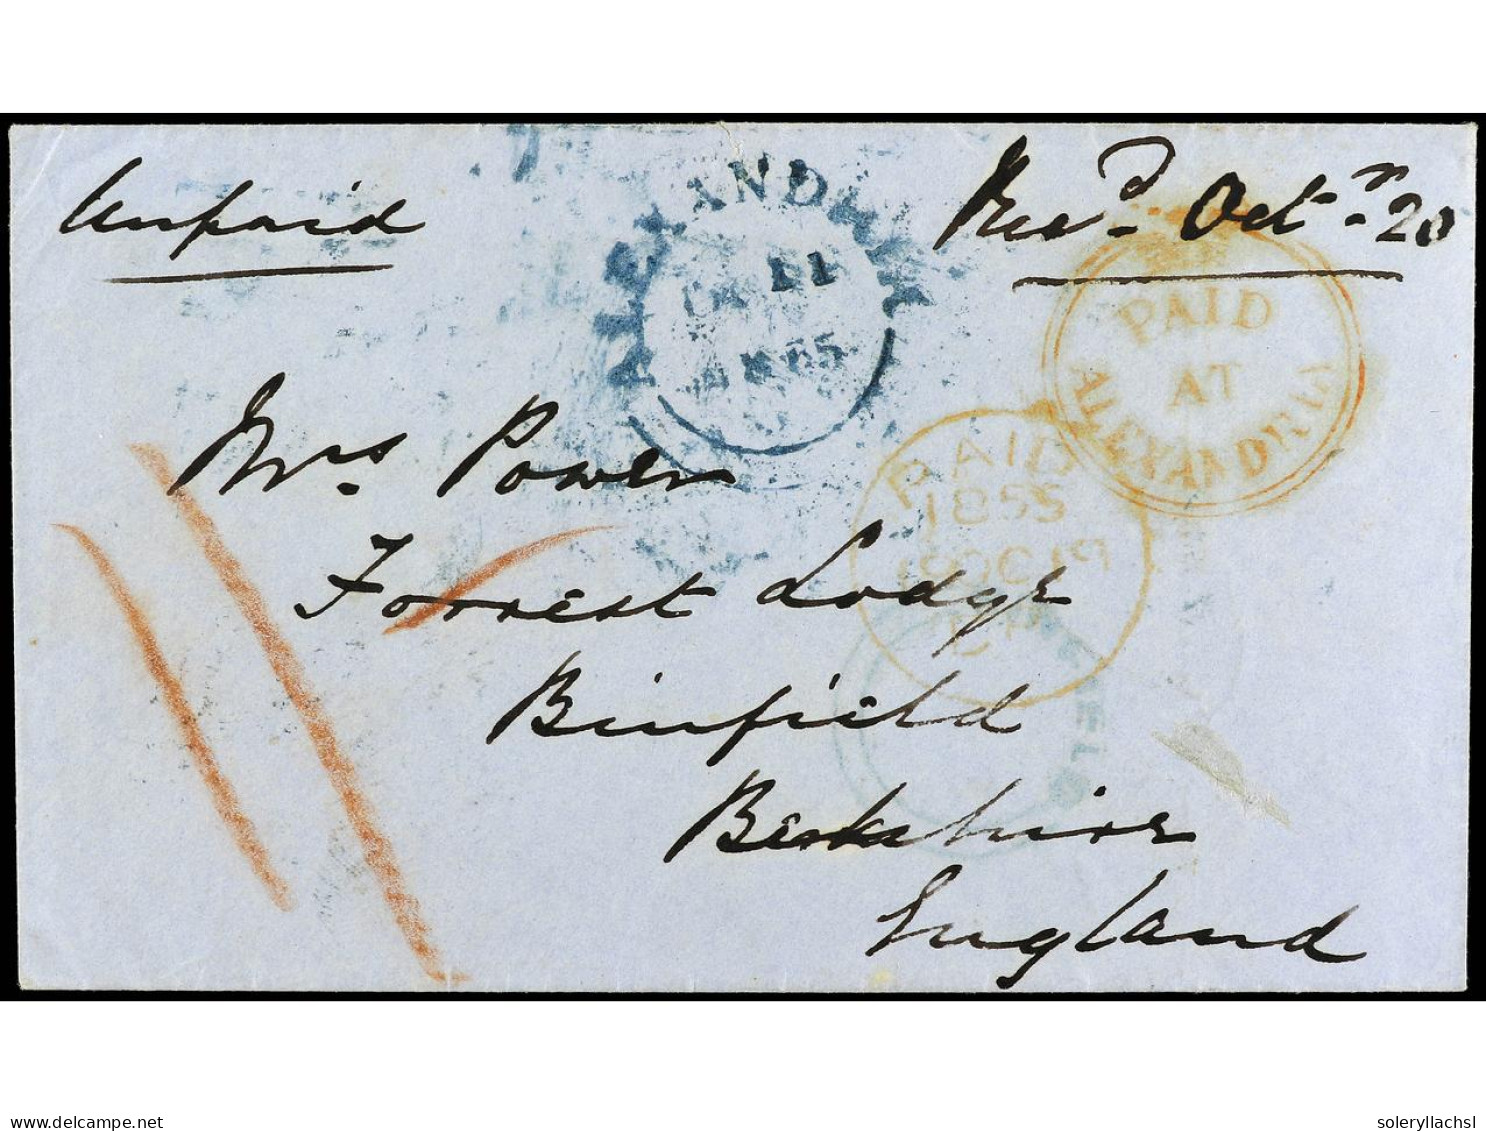 Unpaid
Recd. Octr. 20
ALEXANDRIA
11
PAID
AT
ALEXANDRIA
Mrs. Power
PAID
1855
19 OC 19
Forrest Lodge
Binfield
Berkshire
England
delcampe.net
soleryllachsl